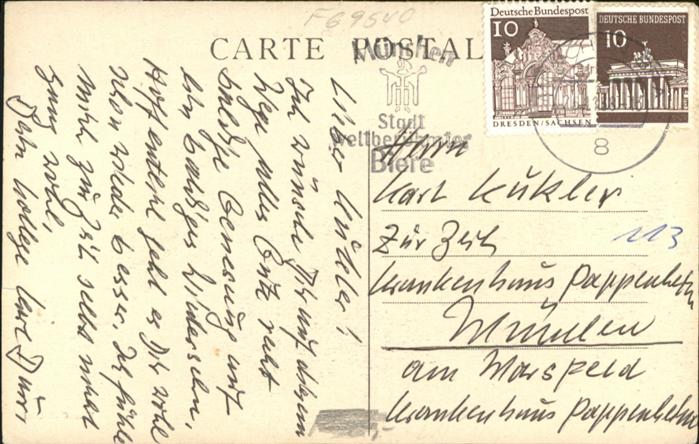 F69540
CARTE POSTALE
Deutsche Bundespost
10
DRESDEN/SACHSEN
DEUTSCHE BUNDESPOST
10
München
Stadt
weltberühmter
Biere
8
Lieber Kukler!
Ich wünsche Dir auf diesem
Wege alles Gute recht
baldige Genesung auf
ein baldiges Wiedersehn.
Hoffentlich geht es Dir wohl
schon wieder besser. Ich fühle
mich zur Zeit selbst nicht
ganz wohl,
Dein Kollege Karl
Herrn
Karl Kukler
Zur Zeit
113
Krankenhaus Pappenheim
München
am Marsfeld
Krankenhaus Pappenheim